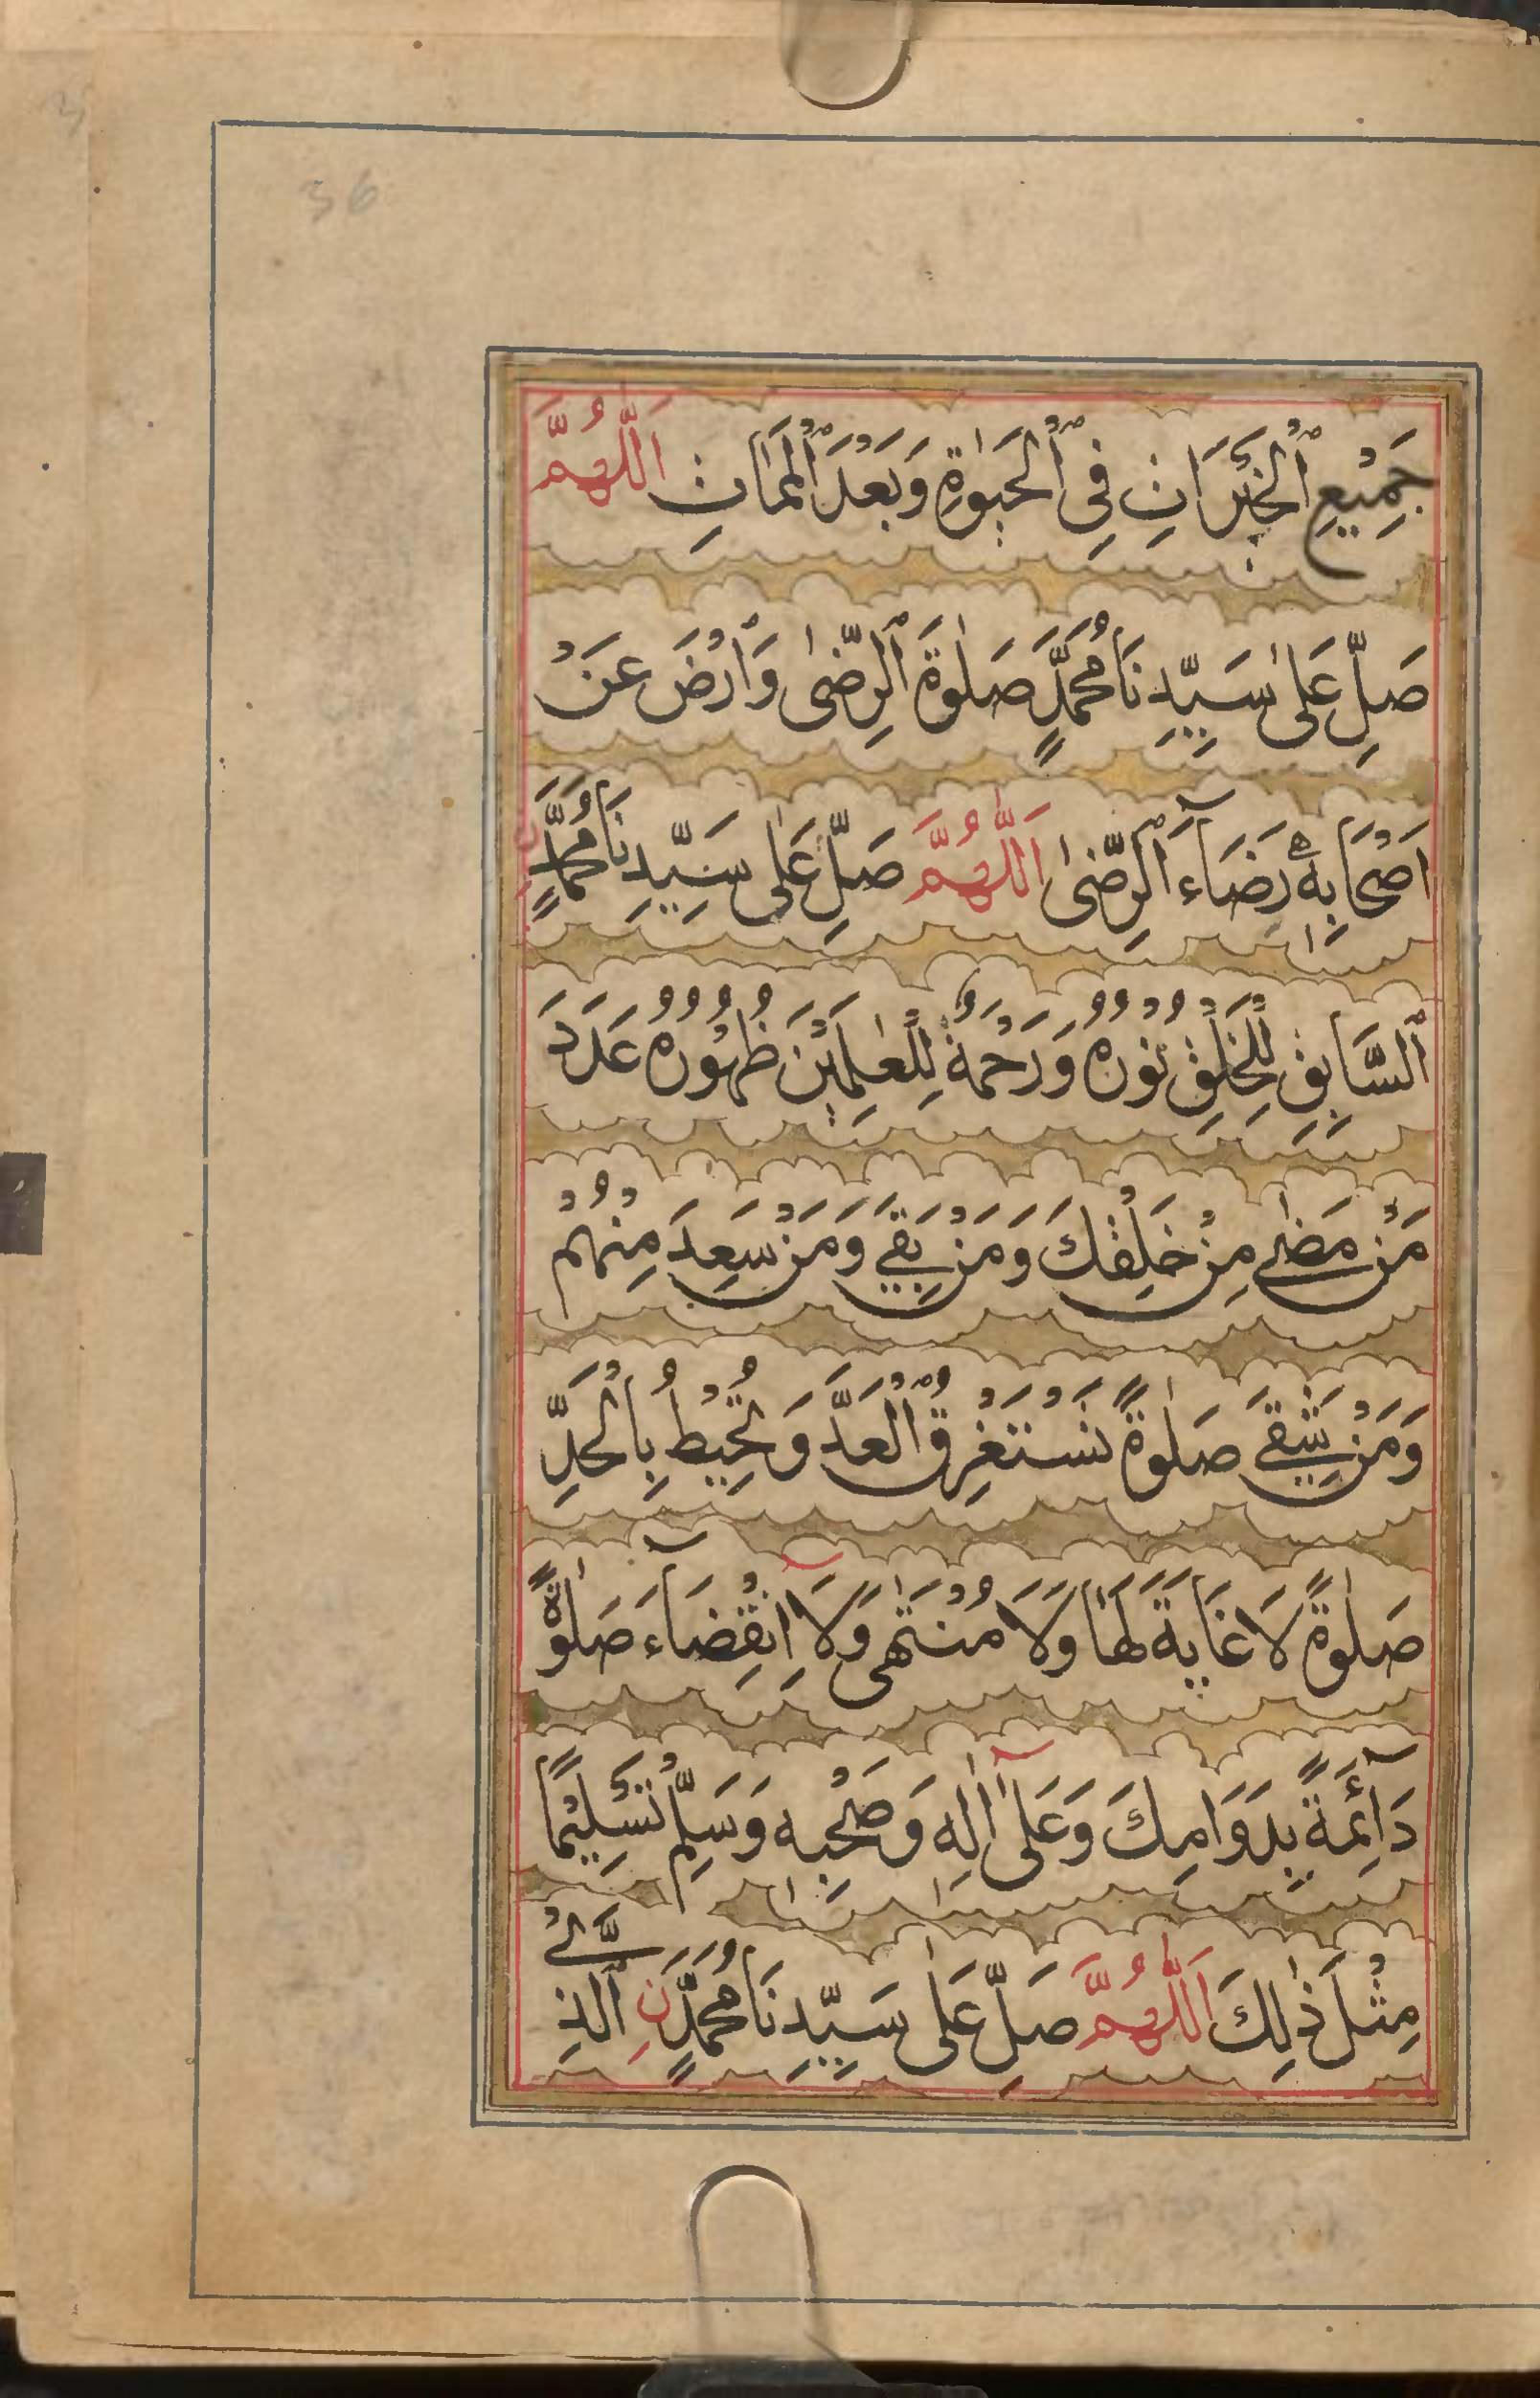 36
جَمِيْعِ ٱلْخَيْرَاتِ فِى ٱلْحَيٰوةِ وَبَعْدَ ٱلْمَمَاتِ اَللّٰهُمَّ
صَلِّ عَلٰى سَيِّدِنَا مُحَمَّدٍ صَلٰوةَ ٱلرِّضٰى وَٱرْضَ عَنْ
اَصْحَابِهٖ رِضَآءَ ٱلرِّضٰى اَللّٰهُمَّ صَلِّ عَلٰى سَيِّدِنَا مُحَمَّدٍ نِ
ٱلسَّابِقِ لِلْخَلْقِ نُوْرُهُ وَرَحْمَةٌ لِلْعٰلَمِيْنَ ظُهُوْرُهُ عَدَدَ
مَنْ مَضٰى مِنْ خَلْقِكَ وَمَنْ بَقِىَ وَمَنْ سَعِدَ مِنْهُمْ
وَمَنْ شَقِىَ صَلٰوةً تَسْتَغْرِقُ ٱلْعَدَّ وَتُحِيْطُ بِالْحَدِّ
صَلٰوةً لَا غَايَةَ لَهَا وَلَا مُنْتَهٰى وَلَا اِنْقِضَآءَ صَلٰوةً
دَآئِمَةً بِدَوَامِكَ وَعَلٰى اٰلِهٖ وَصَحْبِهٖ وَسَلِّمْ تَسْلِيْمًا
مِثْلَ ذٰلِكَ اَللّٰهُمَّ صَلِّ عَلٰى سَيِّدِنَا مُحَمَّدٍ نِ ٱلَّذِىْ